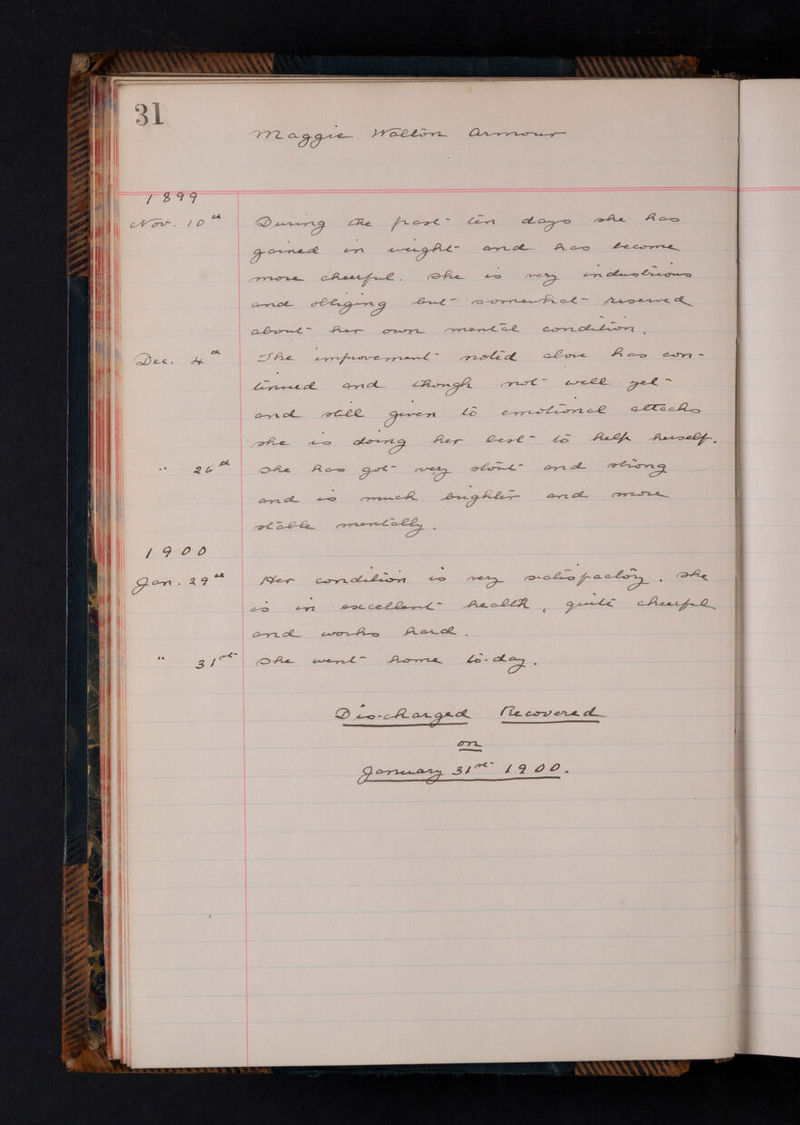 31
Maggie Walton Armour
1899
Nov. 10th During the past ten days she has
gained in weight and has become
more cheerful. She is very industrious
and obliging but somewhat reserved
about her own mental condition.
Dec. 4th The improvement noted above has con-
tinued and though not well yet
and still given to emotional attacks
she is doing her best to help herself.
" 26th She has got very stout and strong
and is much brighter and more
stable mentally.
1900
Jan. 29th Her condition is very satisfactory. She
is in excellent health, quite cheerful
and works hard.
" 31st She went home to-day.
Discharged Recovered
on
January 31st 1900.